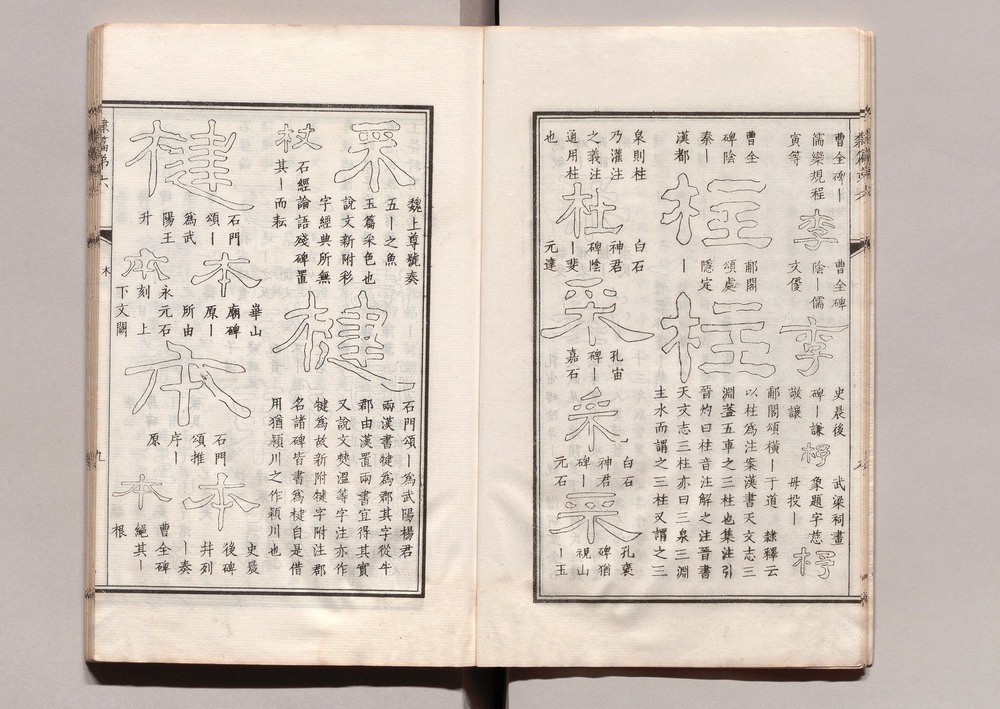 曹全碑ー
儒欒規程
寅等
李
曹全碑
陰ー儒
文優
李
史晨後
碑ー謙
敬讓
杼
武梁祠畫
象題字慈
母投ー
杼
曹全
碑陰
秦ー
漢都
柱
郙閣
頌處
隱定
ー
柱
郙閣頌橫ー于道 隸釋云
以柱為注案漢書天文志三
淵蓋五車之三柱也集注引
晉灼曰柱音注解之注晉書
天文志三柱亦曰三泉三淵
主水而謂之三柱又謂之三
泉則柱
乃灌注
之義注
通用柱
也
柱
白石
神君
碑陰
ー斐
元達
采
孔宙
碑ー
嘉石
采
白石
神君
碑ー
元石
采
孔褒
碑猶
視山
ー玉
采
魏上尊號奏
五ー之魚
玉篇采色也
說文新附彩
字經典所無
杖
石經論語殘碑置
其ー而耘
楗
石門頌ー為武陽楊君
兩漢書犍為郡其字從牛
郡由漢置兩書宜得其實
又說文僰溫等字注亦作
犍為故新附犍字附注郡
名諸碑皆書為楗自是借
用猶潁川之作穎川也
楗
石門
頌ー
為武
陽王
升
本
華山
廟碑
原ー
所由
本
永元石
刻 上
下文闕
本
石門
頌推
序ー
原
本
史晨
後碑
并列
ー奏
本
曹全碑
絕其ー
根
隸篇弟六
木
九